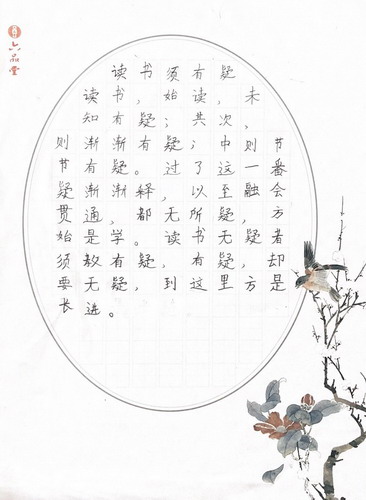 六品堂
读书须有疑
读书，始读，未
知有疑；共次，
则渐渐有疑；中则节
节有疑。过了这一番
疑渐渐释，以至融会
贯通，都无所疑，方
始是学。读书无疑者
须教有疑，有疑，却
要无疑，到这里方是
长进。